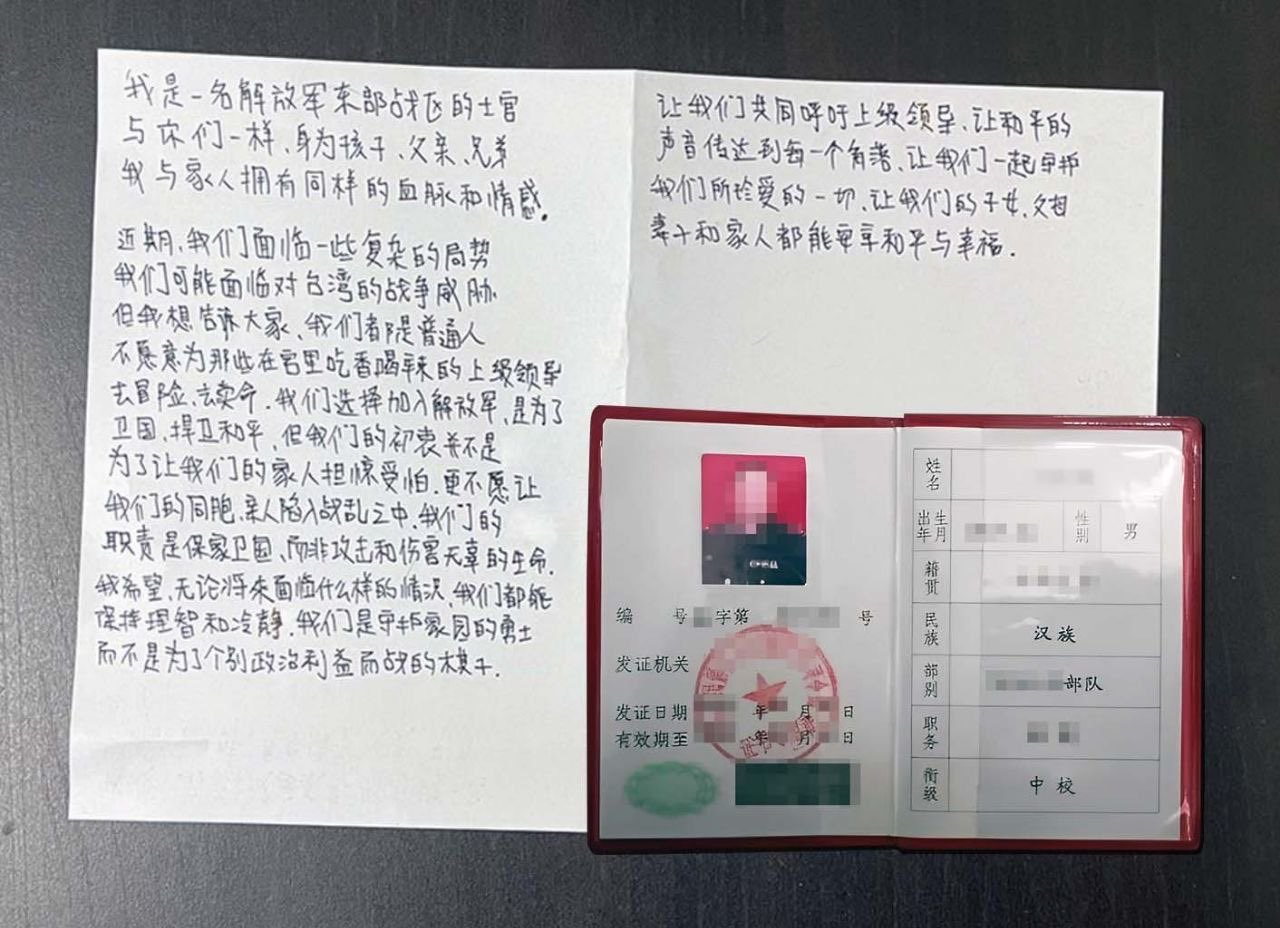 我是一名解放军东部战区的士官
与你们一样、身为孩子、父亲、兄弟
我与家人拥有同样的血脉和情感.
近期、我们面临一些复杂的局势
我们可能面临对台湾的战争威胁.
但我想告诉大家、我们都是普通人
不愿意为那些在宫里吃香喝辣的上级领导
去冒险、去卖命.我们选择加入解放军、是为了
卫国、捍卫和平、但我们的初衷并不是
为了让我们的家人担惊受怕.更不愿让
我们的同胞、亲人陷入战乱之中.我们的
职责是保家卫国、而非攻击和伤害无辜的生命.
我希望、无论将来面临什么样的情况、我们都能
保持理智和冷静.我们是守护家园的勇士
而不是为了个别政治利益而战的棋子.
让我们共同呼吁上级领导、让和平的
声音传达到每一个角落、让我们一起守护
我们所珍爱的一切、让我们的子女、父母
妻子和家人都能安享和平与幸福.
编 号 字第 号
发证机关
发证日期 年 月 日
有效期至 年 月 日
姓名
出生年月 性别 男
籍贯
民族 汉族
部别 部队
职务
衔级 中校